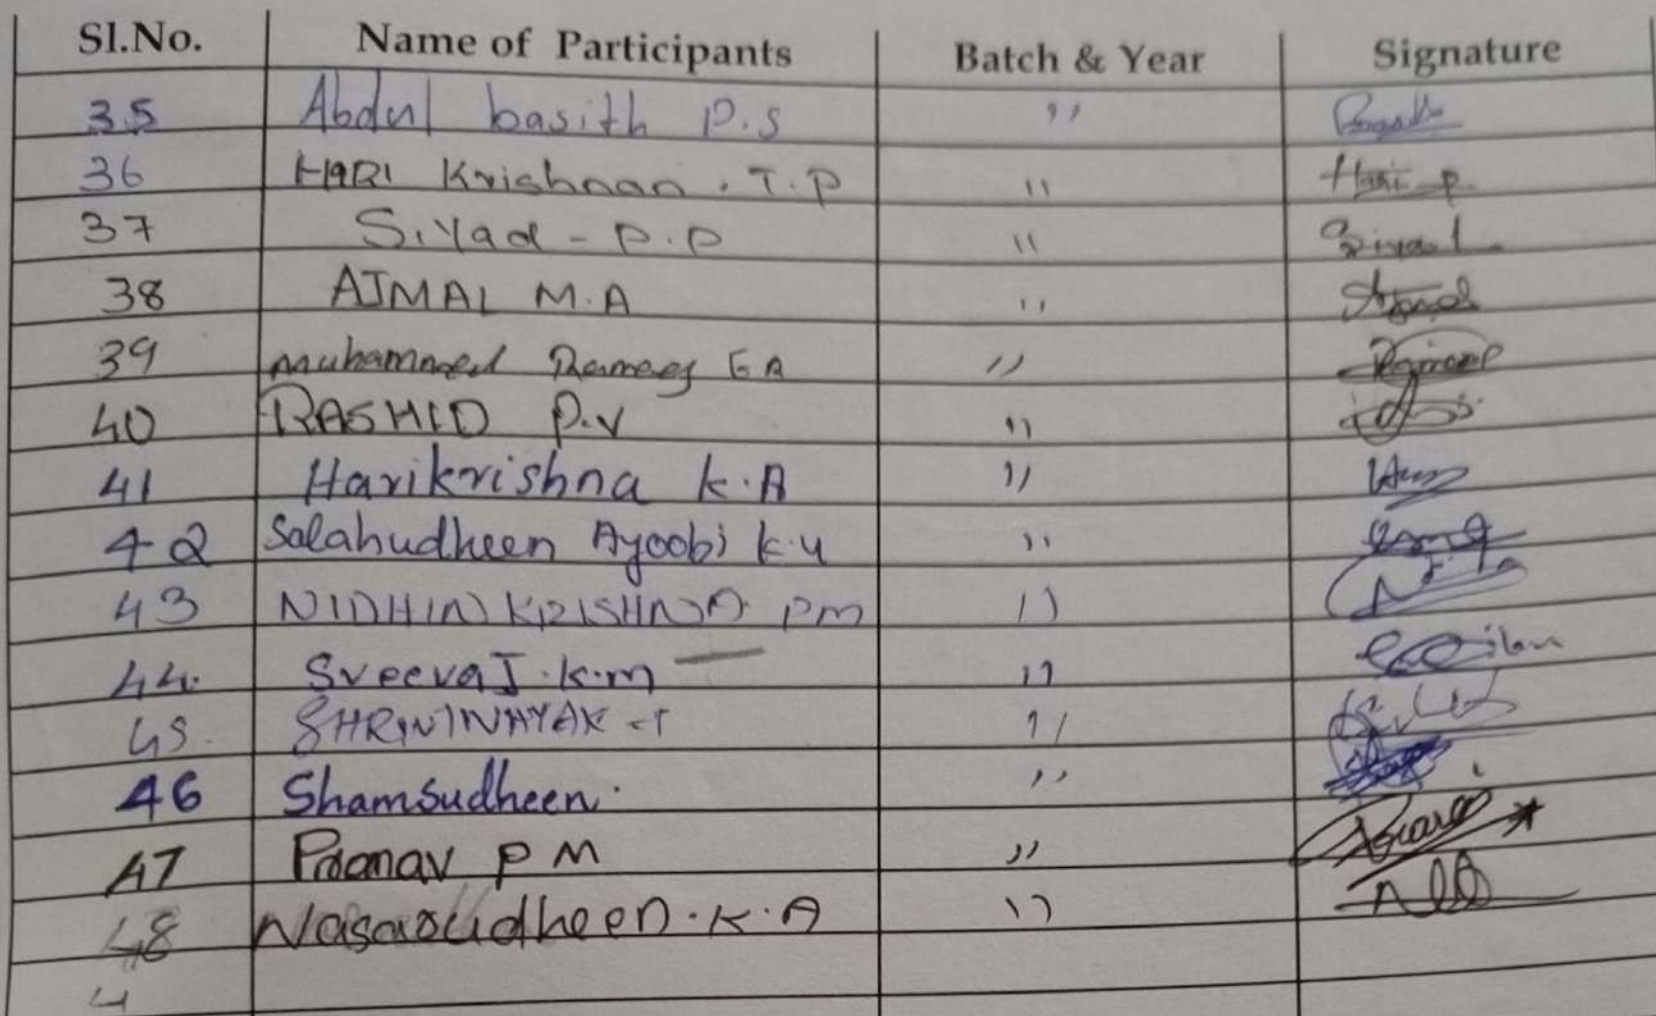 Sl.No. Name of Participants Batch & Year Signature
35 Abdul basith P.S ''
36 HARI Krishnan . T.P '' Hari
37 Siyad - P.P '' Siyad
38 AJMAL M.A '' Ajmal
39 Muhammed Ramees E A ''
40 RASHID P.V ''
41 Harikrishna K.A ''
42 Salahudheen Ayoobi K.U ''
43 NIDHIN KRISHNA PM ''
44. SreeraJ.K.m ''
45. SHRIVINAYAK -T ''
46 Shamsudheen. ''
47 Pranav P M ''
48 Nasarudheen.K.A ''
4